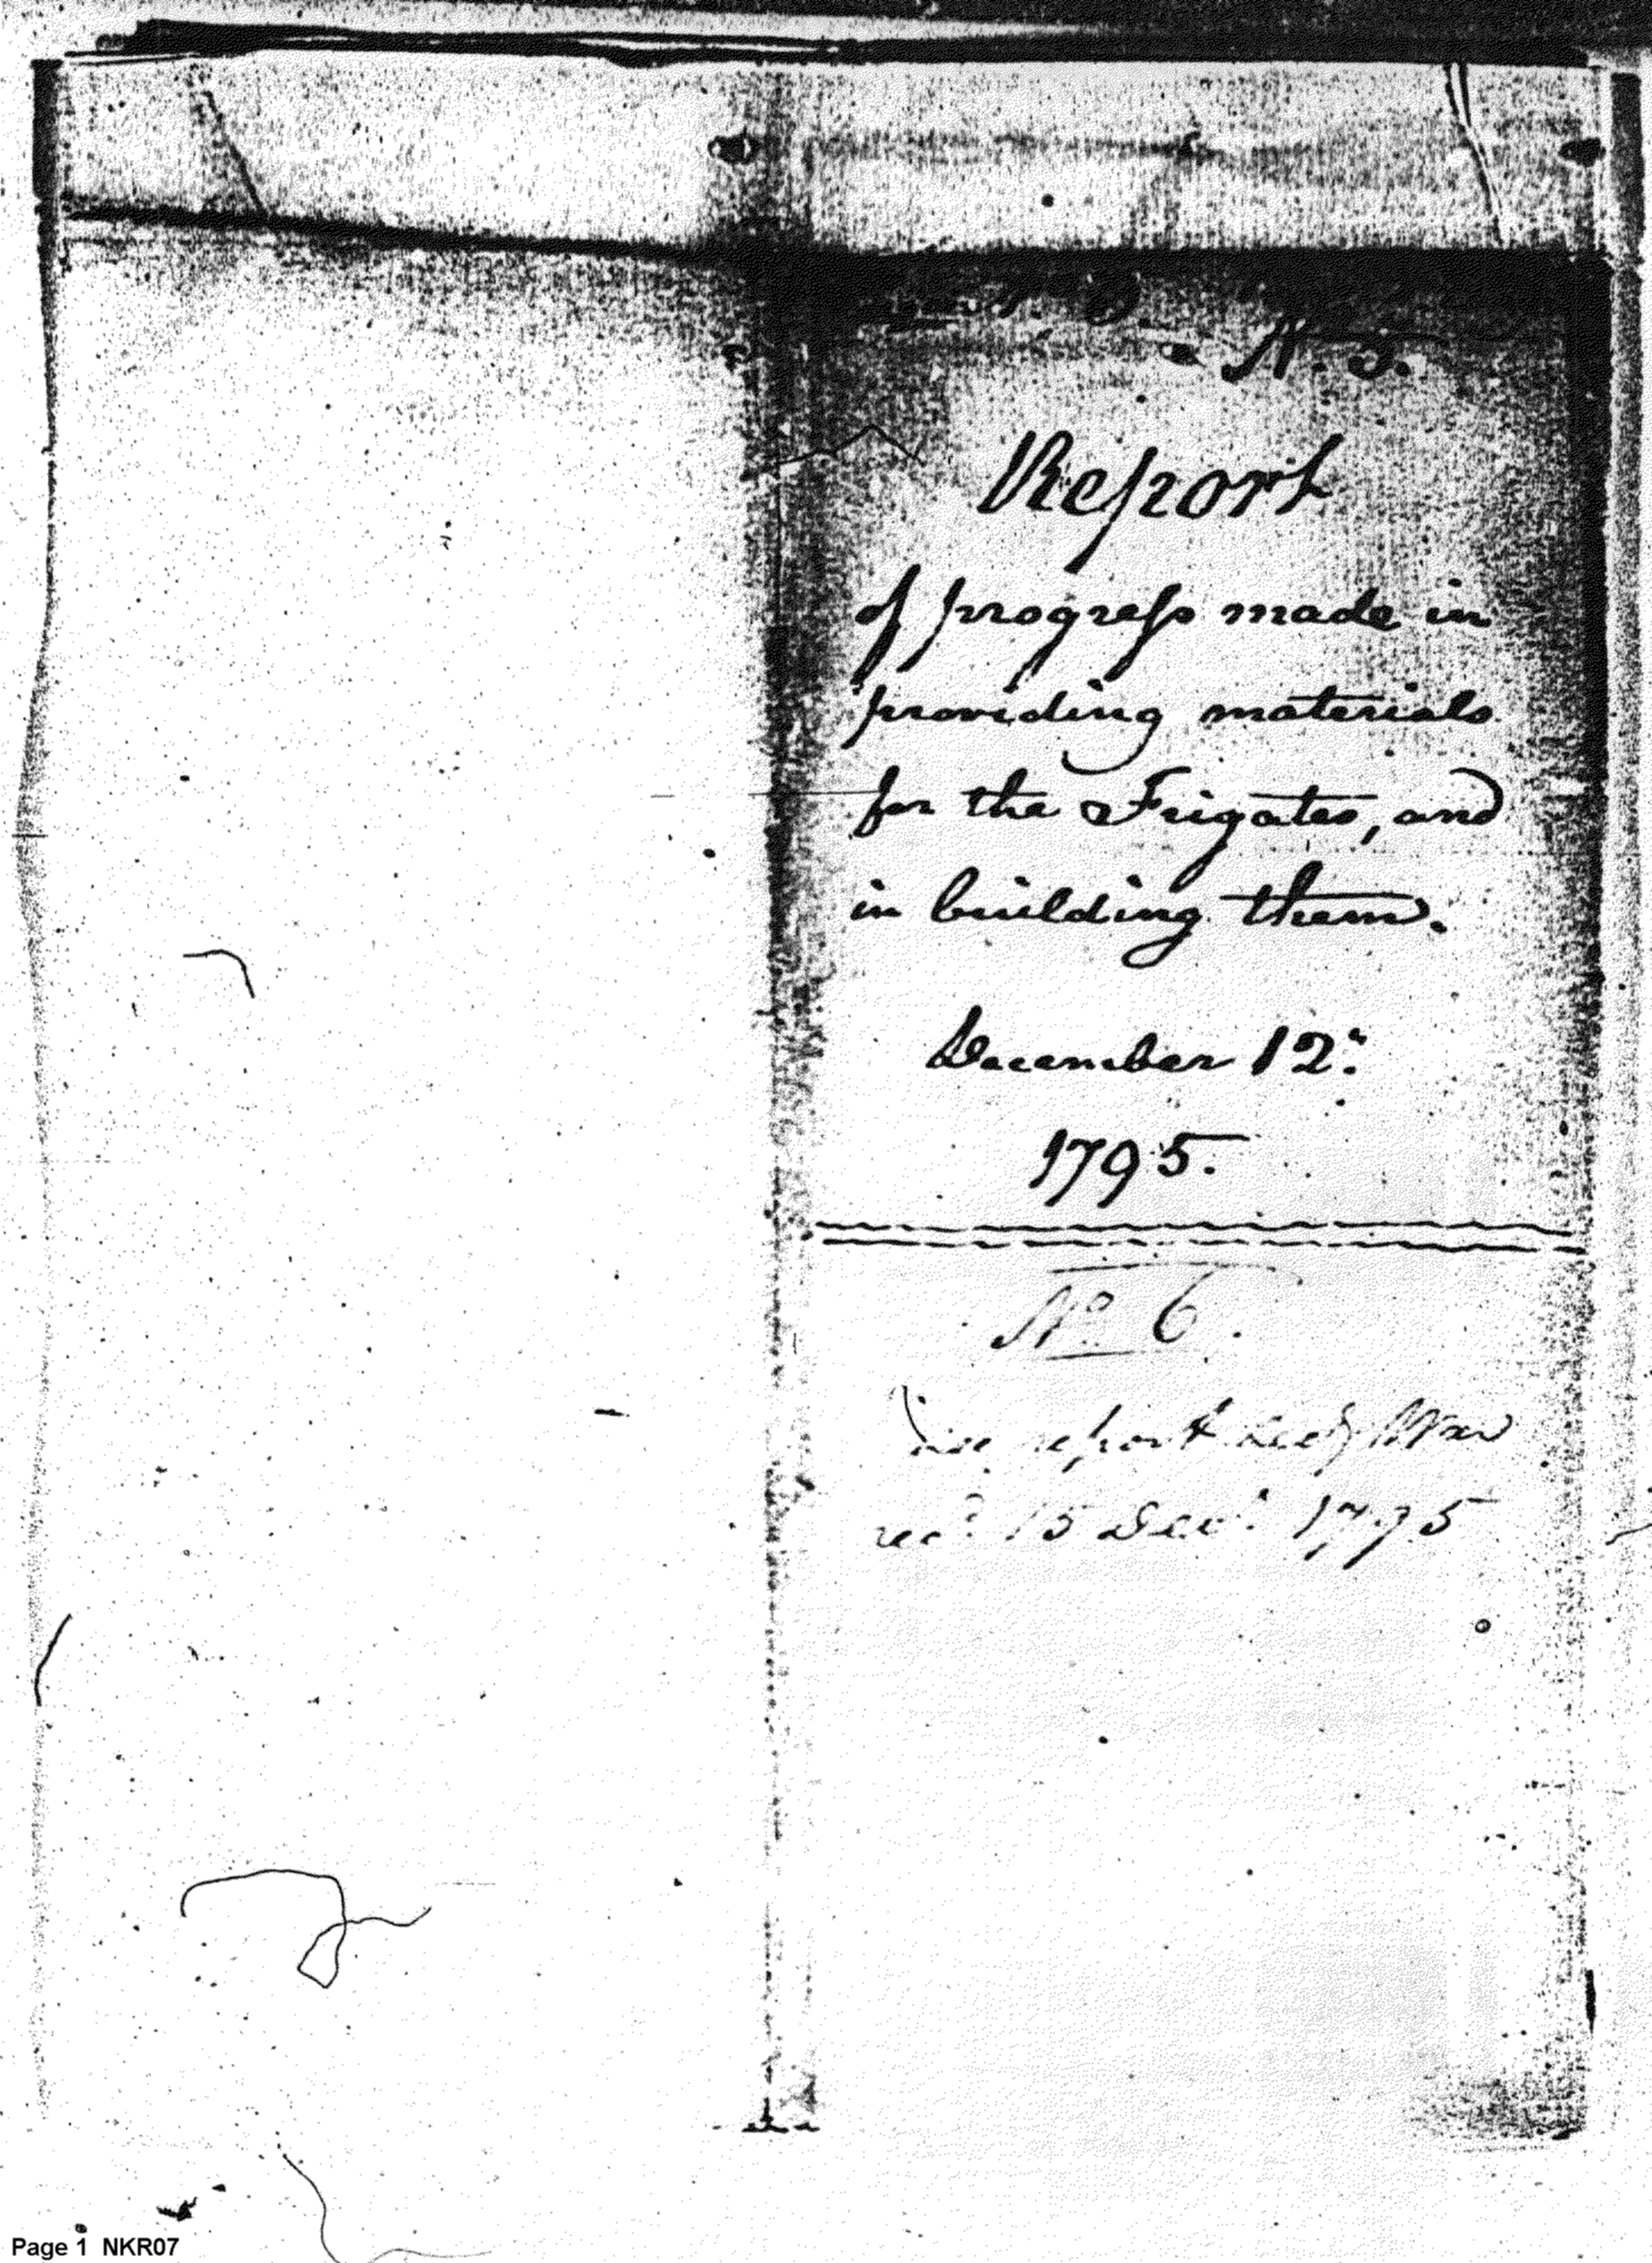 Report
of progreſs made in
providing materials
for the Frigates, and
in building them.
December 12.
1795.
No 6.
report Secy War
recd 15 Decr 1795
Page 1 NKR07